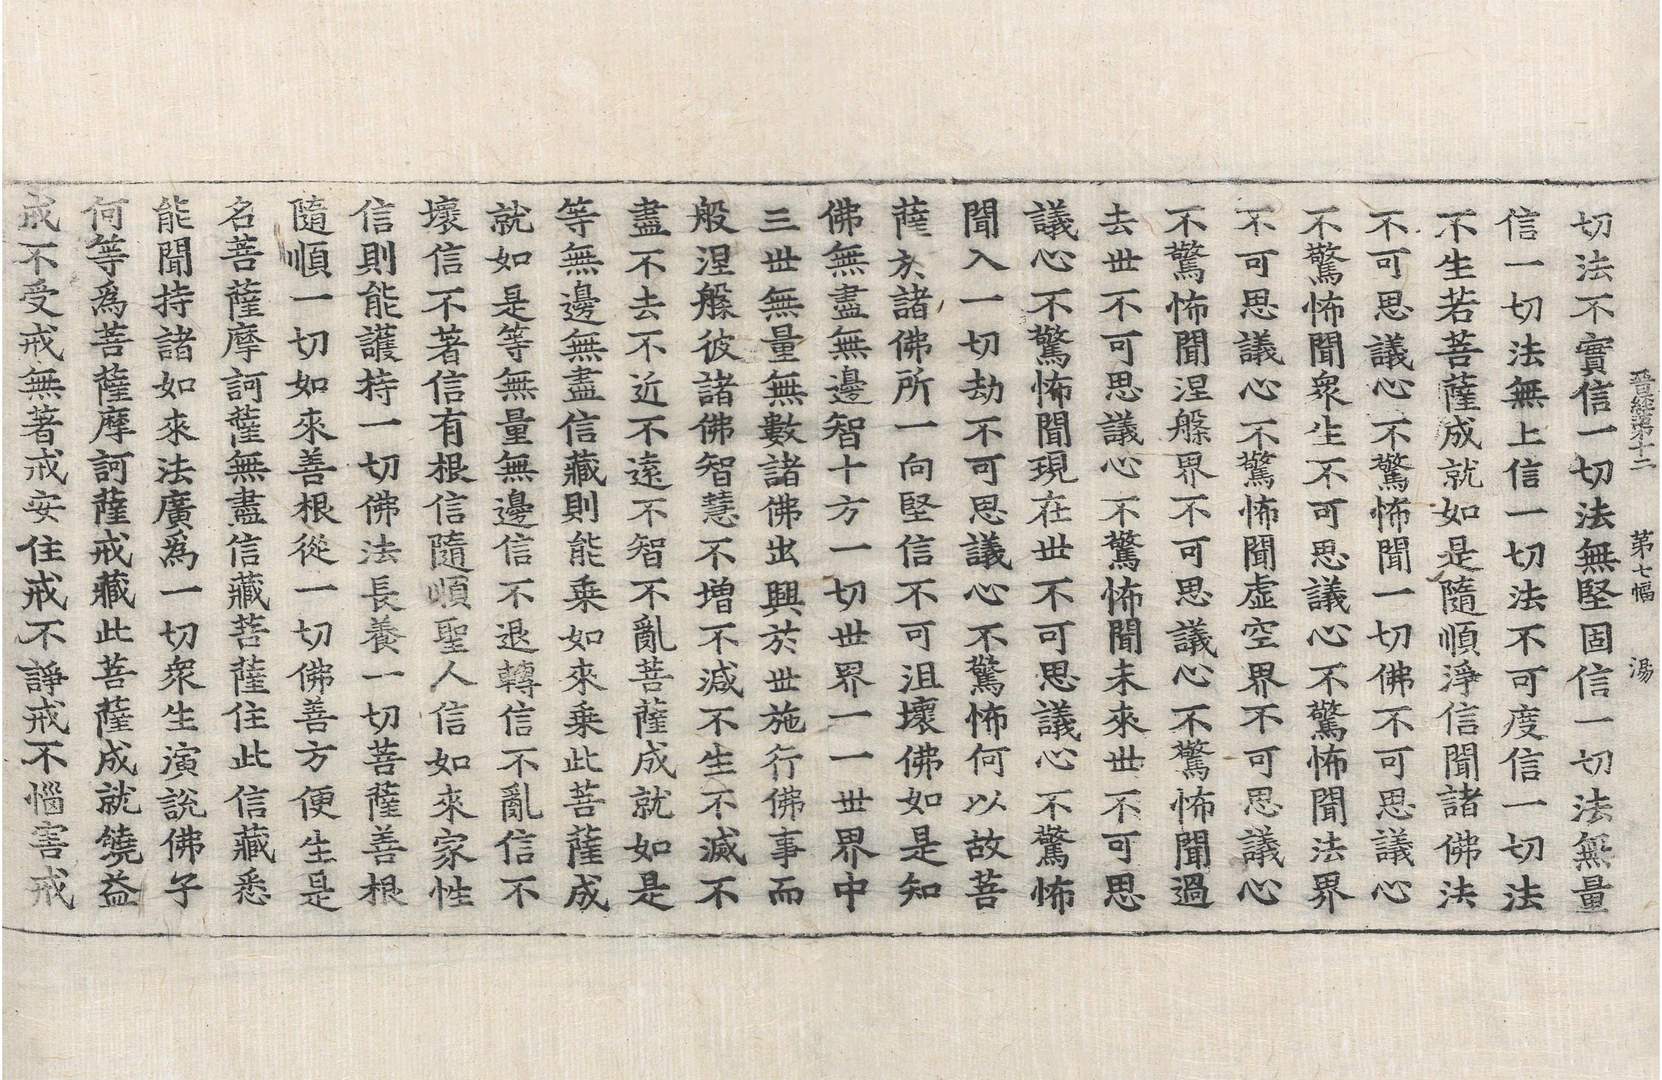 晉經第十二　第七幅　湯
切法不實信一切法無堅固信一切法無量
信一切法無上信一切法不可度信一切法
不生若菩薩成就如是隨順淨信聞諸佛法
不可思議心不驚怖聞一切佛不可思議心
不驚怖聞衆生不可思議心不驚怖聞法界
不可思議心不驚怖聞虛空界不可思議心
不驚怖聞涅槃界不可思議心不驚怖聞過
去世不可思議心不驚怖聞未來世不可思
議心不驚怖聞現在世不可思議心不驚怖
聞入一切劫不可思議心不驚怖何以故菩
薩於諸佛所一向堅信不可沮壞佛如是知
佛無盡無邊智十方一切世界一一世界中
三世無量無數諸佛出興於世施行佛事而
般涅槃彼諸佛智慧不增不減不生不滅不
盡不去不近不遠不智不亂菩薩成就如是
等無邊無盡信藏則能乗如來乗此菩薩成
就如是等無量無邊信不退轉信不亂信不
壞信不著信有根信隨順聖人信如來家性
信則能護持一切佛法長養一切菩薩善根
隨順一切如來善根從一切佛善方便生是
名菩薩摩訶薩無盡信藏菩薩住此信藏悉
能聞持諸如來法廣爲一切衆生演說佛子
何等爲菩薩摩訶薩戒藏此菩薩成就饒益
戒不受戒無著戒安住戒不諍戒不惱害戒